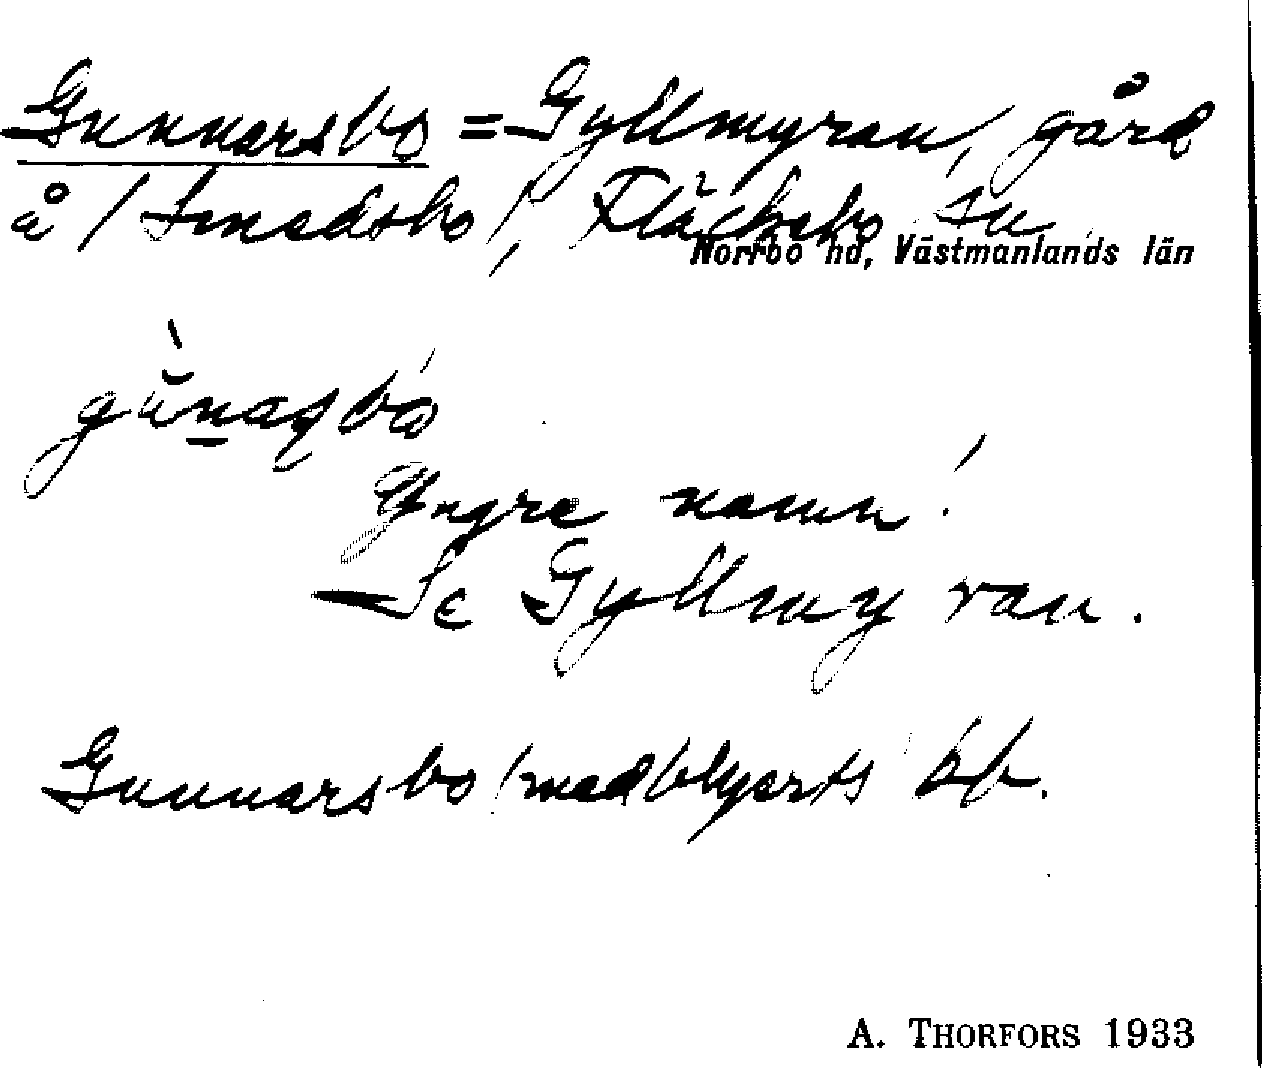 Gunnarsbo = Gyllmyran, gård
å / Smedsbo /, Fläckebo sn
Norrbo hd, Västmanlands län
Yngre namn!
Se Gyllmyran.
Gunnarsbo / med blyerts / kb.
A. THORFORS 1933